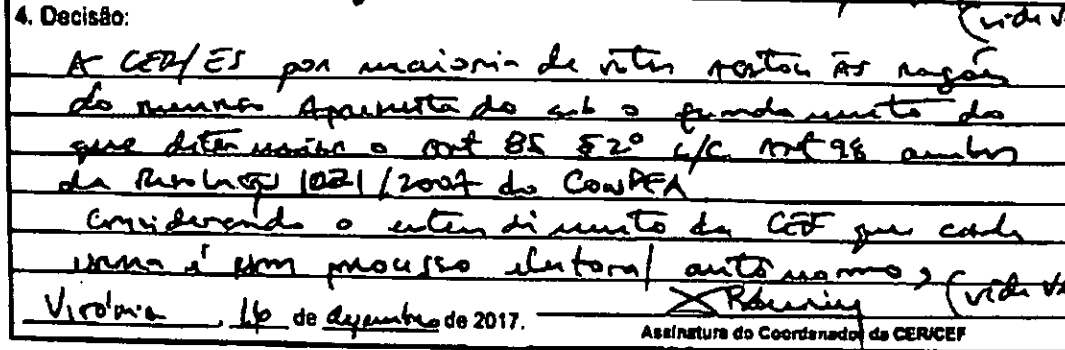 (vide v
4. Decisão:
A CER/ES por maioria de votos acatou as razões
do recurso apresentado sob o fundamento do
que determina o art 85 § 2º c/c art 98 ambos
da Resolução 1021/2007 do CONFEA
Considerando o entendimento da CEF que cada
urna é um processo eleitoral autônomo, (vide v
Vitória, 16 de dezembro de 2017.
Assinatura do Coordenador da CER/CEF